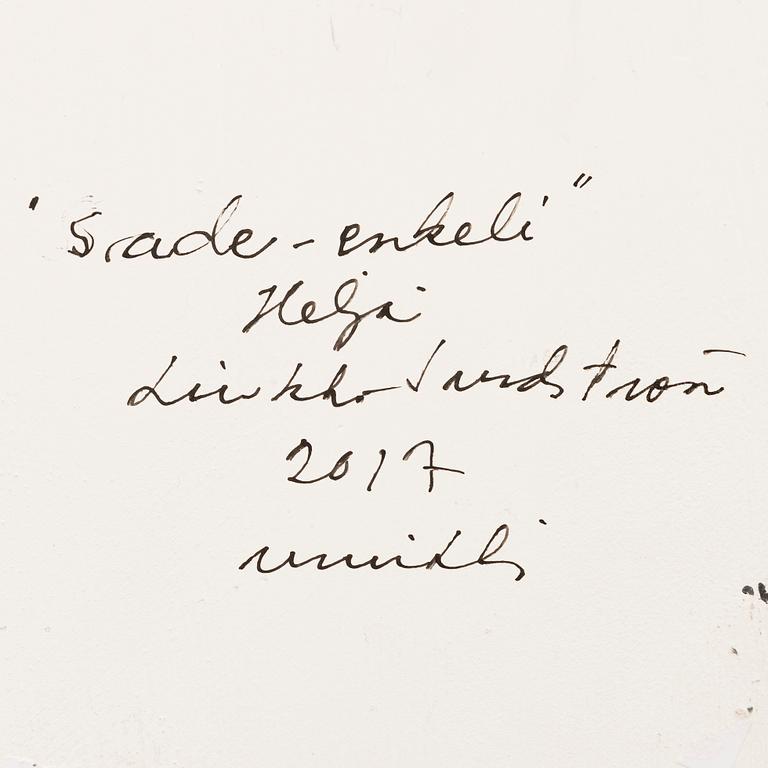 "Sade-enkeli"
Heljä
Liukko-Sundström
2017
uniikki